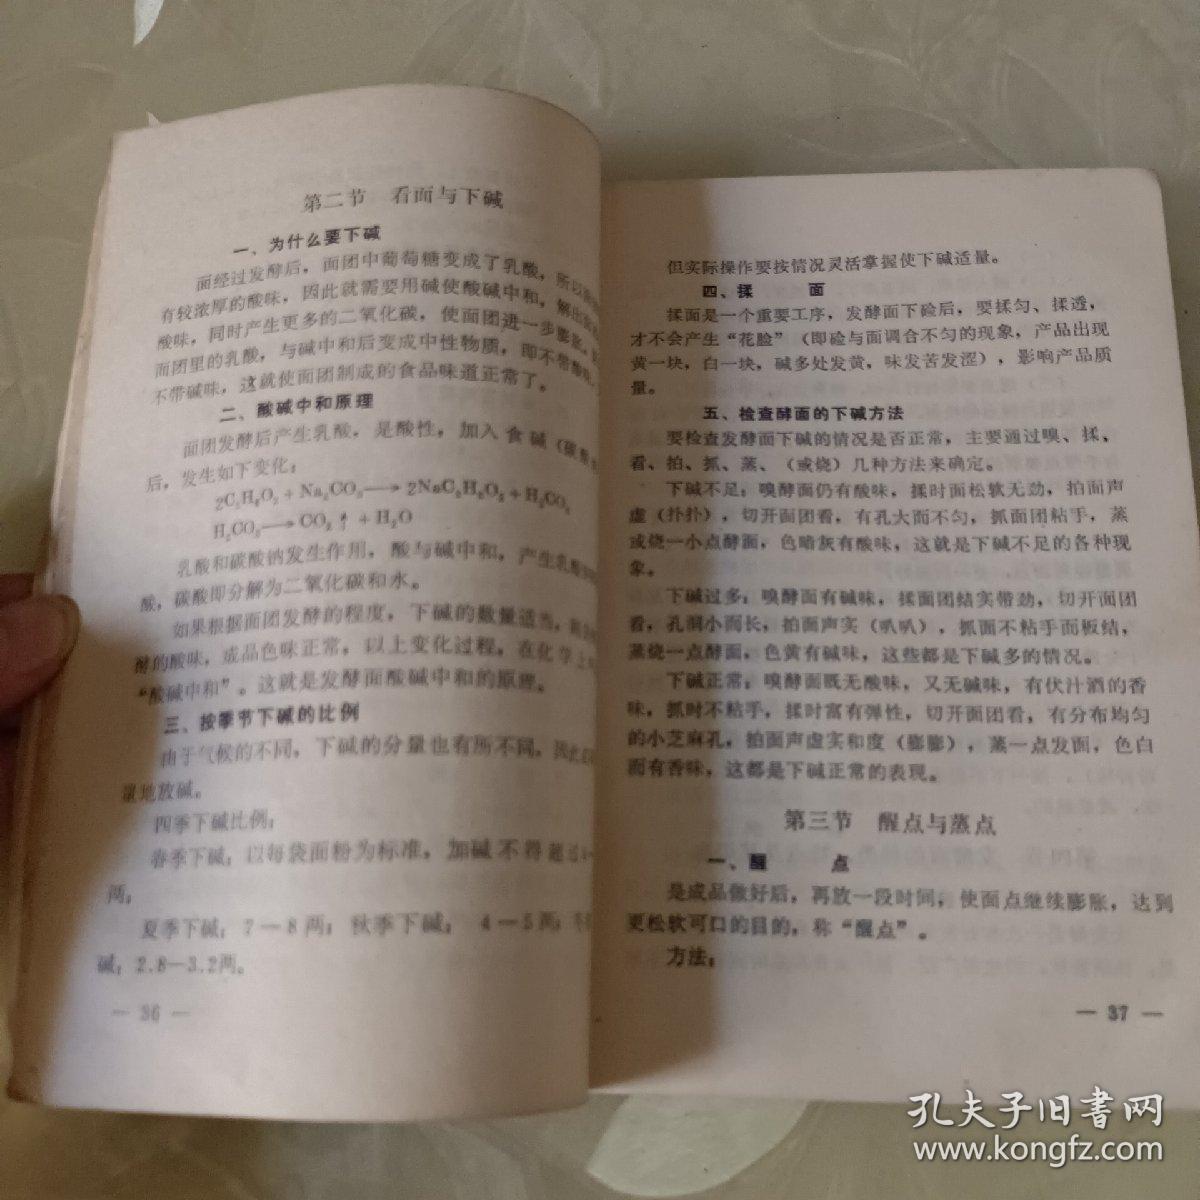 第二节 看面与下碱
一、为什么要下碱
面经过发酵后，面团中葡萄糖变成了乳酸，所以
有较浓厚的酸味，因此就需要用碱使酸碱中和，解出
酸味，同时产生更多的二氧化碳，使面团进一步膨胀。
而团里的乳酸，与碱中和后变成中性物质，即不带酸味，
不带碱味，这就使面团制成的食品味道正常了。
二、酸碱中和原理
面团发酵后产生乳酸，是酸性，加入食碱（碳
后，发生如下变化：
2C₃H₆O₃＋Na₂CO₃⟶2NaC₃H₅O₃＋H₂CO₃
H₂CO₃⟶CO₂↑＋H₂O
乳酸和碳酸钠发生作用，酸与碱中和，产生乳酸
酸，碳酸即分解为二氧化碳和水。
如果根据面团发酵的程度，下碱的数量适当，
酵的酸味，成品色味正常，以上变化过程，在化学上
“酸碱中和”。这就是发酵面酸碱中和的原理。
三、按季节下碱的比例
由于气候的不同，下碱的分量也有所不同，因此
量地放碱。
四季下碱比例：
春季下碱：以每袋面粉为标准，加碱不得超过
两；
夏季下碱：7－8两；秋季下碱： 4－5两；冬
碱：2.8－3.2两。
— 36 —
但实际操作要按情况灵活掌握使下碱适量。
四、揉 面
揉面是一个重要工序，发酵面下硷后，要揉匀、揉透，
才不会产生“花脸”（即硷与面调合不匀的现象，产品出现
黄一块，白一块，碱多处发黄，味发苦发涩），影响产品质
量。
五、检查酵面的下碱方法
要检查发酵面下碱的情况是否正常，主要通过嗅、揉、
看、拍、抓、蒸、（或烧）几种方法来确定。
下碱不足：嗅酵面仍有酸味，揉时面松软无劲，拍面声
虚（扑扑），切开面团看，有孔大而不匀，抓面团粘手，蒸
或烧一小点酵面，色暗灰有酸味，这就是下碱不足的各种现
象。
下碱过多：嗅酵面有碱味，揉面团结实带劲，切开面团
看，孔洞小而长，拍面声实（叭叭），抓面不粘手而板结，
蒸烧一点酵面，色黄有碱味，这些都是下碱多的情况。
下碱正常：嗅酵面既无酸味，又无碱味，有伏汁酒的香
味，抓时不粘手，揉时富有弹性，切开面团看，有分布均匀
的小芝麻孔，拍面声虚实和度（膨膨），蒸一点发面，色白
而有香味，这都是下碱正常的表现。
第三节 醒点与蒸点
一、醒 点
是成品做好后，再放一段时间，使面点继续膨胀，达到
更松软可口的目的，称“醒点”。
方法：
— 37 —
孔夫子旧书网
www.kongfz.com